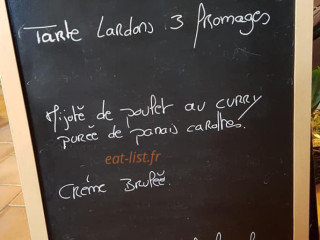 Tarte Lardons 3 fromages
Mijoté de poulet au curry
purée de panais carottes.
eat-list.fr
Crème Brulée.